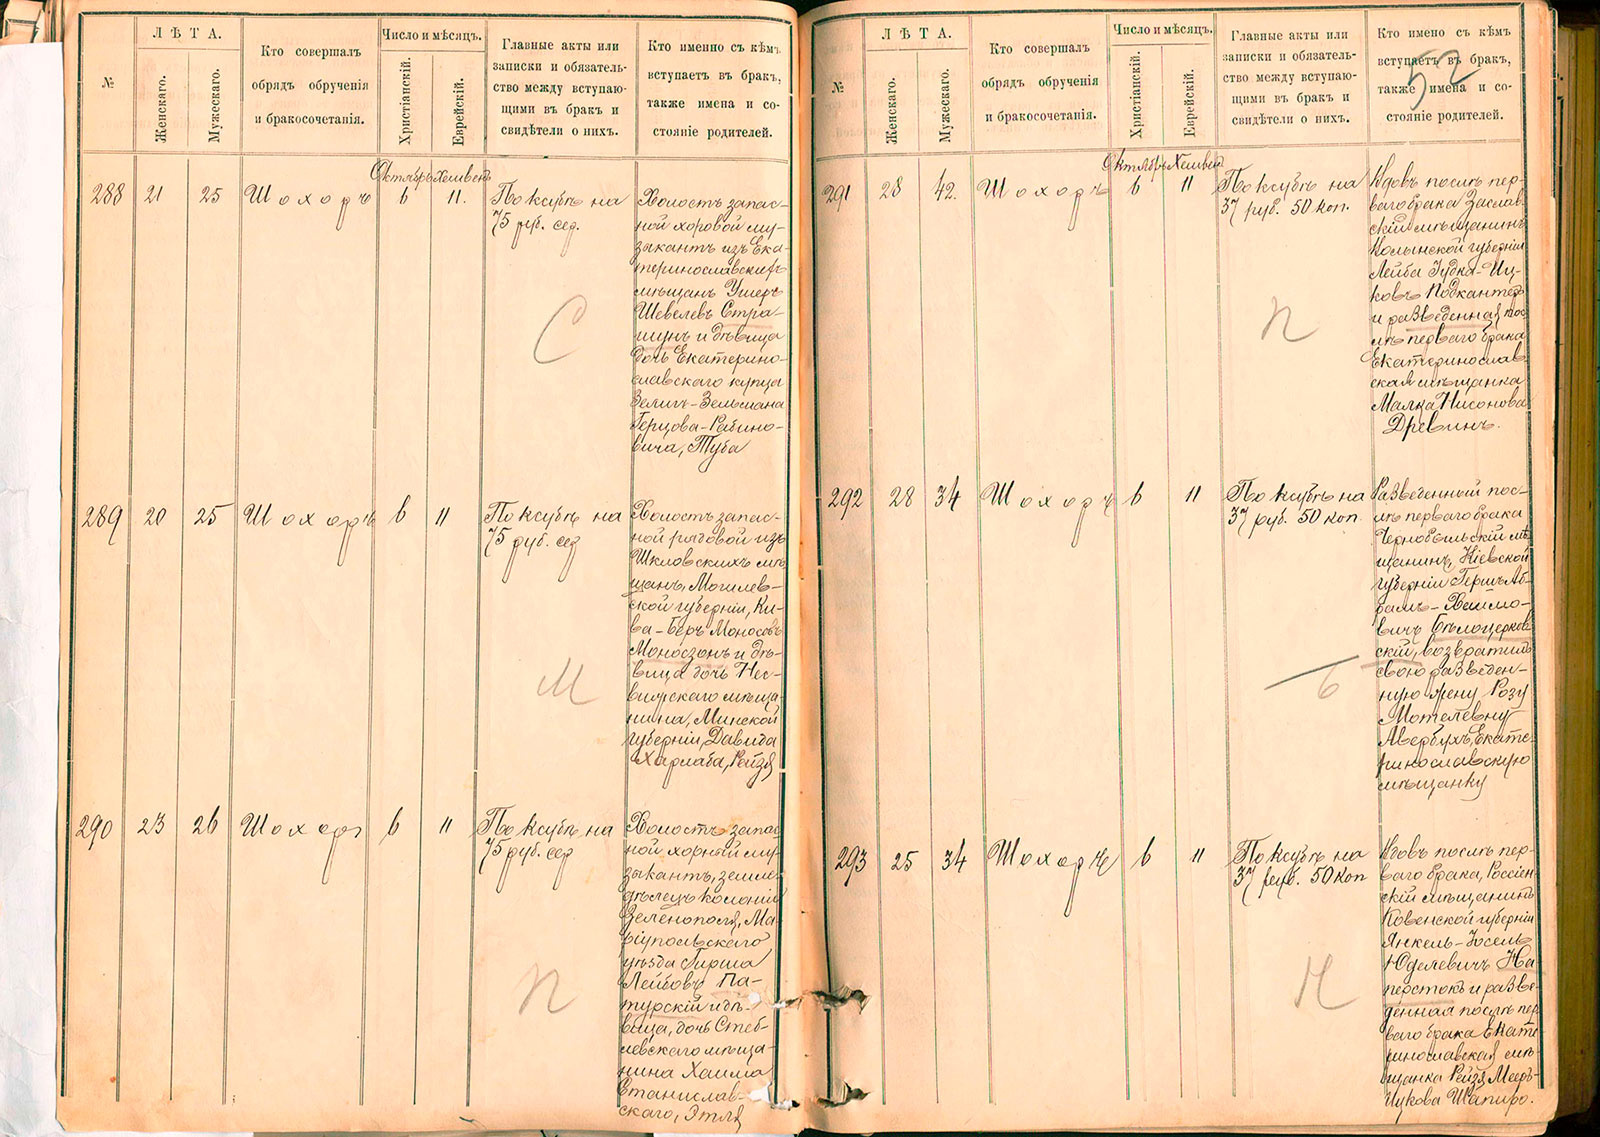 №
ЛѢТА.
Женскаго.
Мужескаго.
Кто совершалъ
обрядъ обрученія
и бракосочетанія.
Число и мѣсяцъ.
Христіанскій.
Еврейскій.
Главные акты или
записки и обязатель-
ство между вступаю-
щими въ бракъ и
свидѣтели о нихъ.
Кто именно съ кѣмъ
вступаетъ въ бракъ,
также имена и со-
стояніе родителей.
Октябрь Хешвенъ
288 21 25 Шохоръ 6 11.
По ксубѣ на
75 руб. сер.
С
Холостъ запас-
ной хоровой му-
зыкантъ изъ Ека-
теринославскихъ
мѣщанъ Ушеръ
Шевелевъ Стра-
шунъ и дѣвица
дочь Екатерино-
славскаго купца
Зеликъ-Зельмана
Герцова-Рабино-
вича, Туба
289 20 25 Шохоръ 6 11
По ксубѣ на
75 руб. сер
М
Холостъ запас-
ной рядовой изъ
Шкловскихъ мѣ-
щанъ, Могилев-
ской губерніи, Ки-
ва-Беръ Моносовъ
Моносзонъ и дѣ-
вица дочь Нес-
вижскаго мѣща-
нина, Минской
губерніи, Давида
Харлаба, Рейзя
290 23 26 Шохоръ 6 11
По ксубѣ на
75 руб. сер
П
Холостъ запас-
ной хорный му-
зыкантъ, земле-
дѣлецъ колоніи
Зеленополя, Ма-
ріупольскаго
уѣзда Гирша
Лейбовъ Па-
турскій и дѣ-
вица, дочь Стеб-
левскаго мѣща-
нина Хаима
Станислав-
скаго, Этля
№
ЛѢТА.
Женскаго.
Мужескаго.
Кто совершалъ
обрядъ обрученія
и бракосочетанія.
Число и мѣсяцъ.
Христіанскій.
Еврейскій.
Главные акты или
записки и обязатель-
ство между вступаю-
щими въ бракъ и
свидѣтели о нихъ.
Кто имено съ кѣмъ
вступаетъ въ бракъ,
также имена и со-
стояніе родителей.
52
Октябрь Хешвен
291 28 42. Шохоръ 6 11
По ксубѣ на
37 руб. 50 коп.
П
Вдовъ послѣ пер-
ваго брака Заслав-
скій мѣщанинъ
Волынской губерніи
Лейба Зудка-Иц-
ковъ Подкантер
и разведенная пос-
лѣ перваго брака
Екатеринослав-
ская мѣщанка
Малка Нисонова
Древинъ.
292 28 34 Шохоръ 6 11
По ксубѣ на
37 руб. 50 коп.
Б
Разведенный пос-
лѣ перваго брака
Чернобыльскій мѣ-
щанинъ, Кіевской
губерніи Гершъ Аб-
рамъ-Хаимо-
вичъ Бѣлоцерков-
скій, возвратилъ
свою разведен-
ную жену Розу
Мотелевну
Авербухъ, Екате-
ринославскую
мѣщанку
293 25 34 Шохоръ 6 11
По ксубѣ на
37 руб. 50 коп
Н
Вдовъ послѣ пер-
ваго брака, Россіен-
скій мѣщанинъ
Ковенской губерніи
Янкель-Іосель
Юделевичъ На-
персток и разве-
денная послѣ пер
ваго брака Екате
ринославская мѣ-
щанка Рейзя Меер-
Ицкова Шапиро.